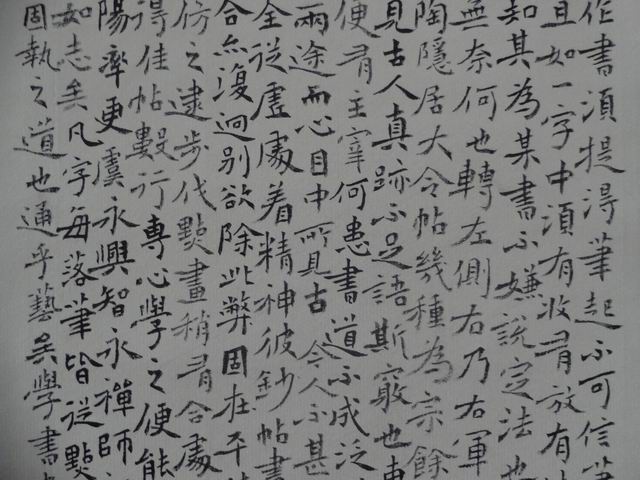 作書須提得筆起不可信筆
且如一字中須有收有放有
知其為某書不嫌說定法也
無奈何也轉左側右乃右軍
陶隱居大令帖幾種為宗餘
見古人真跡不足語斯竅也
便有主宰何患書道不成泛
兩途而心目中所見古今人不甚
全從虛處着精神彼鈔帖書
合亦復迥别欲除此弊固在平
仿之逮步伐點畫稍有合處
得佳帖數行專心學之便能
陽率更虞永興智永禪師
如志矣凡字每落筆皆從點
固執之道也通乎藝矣學書